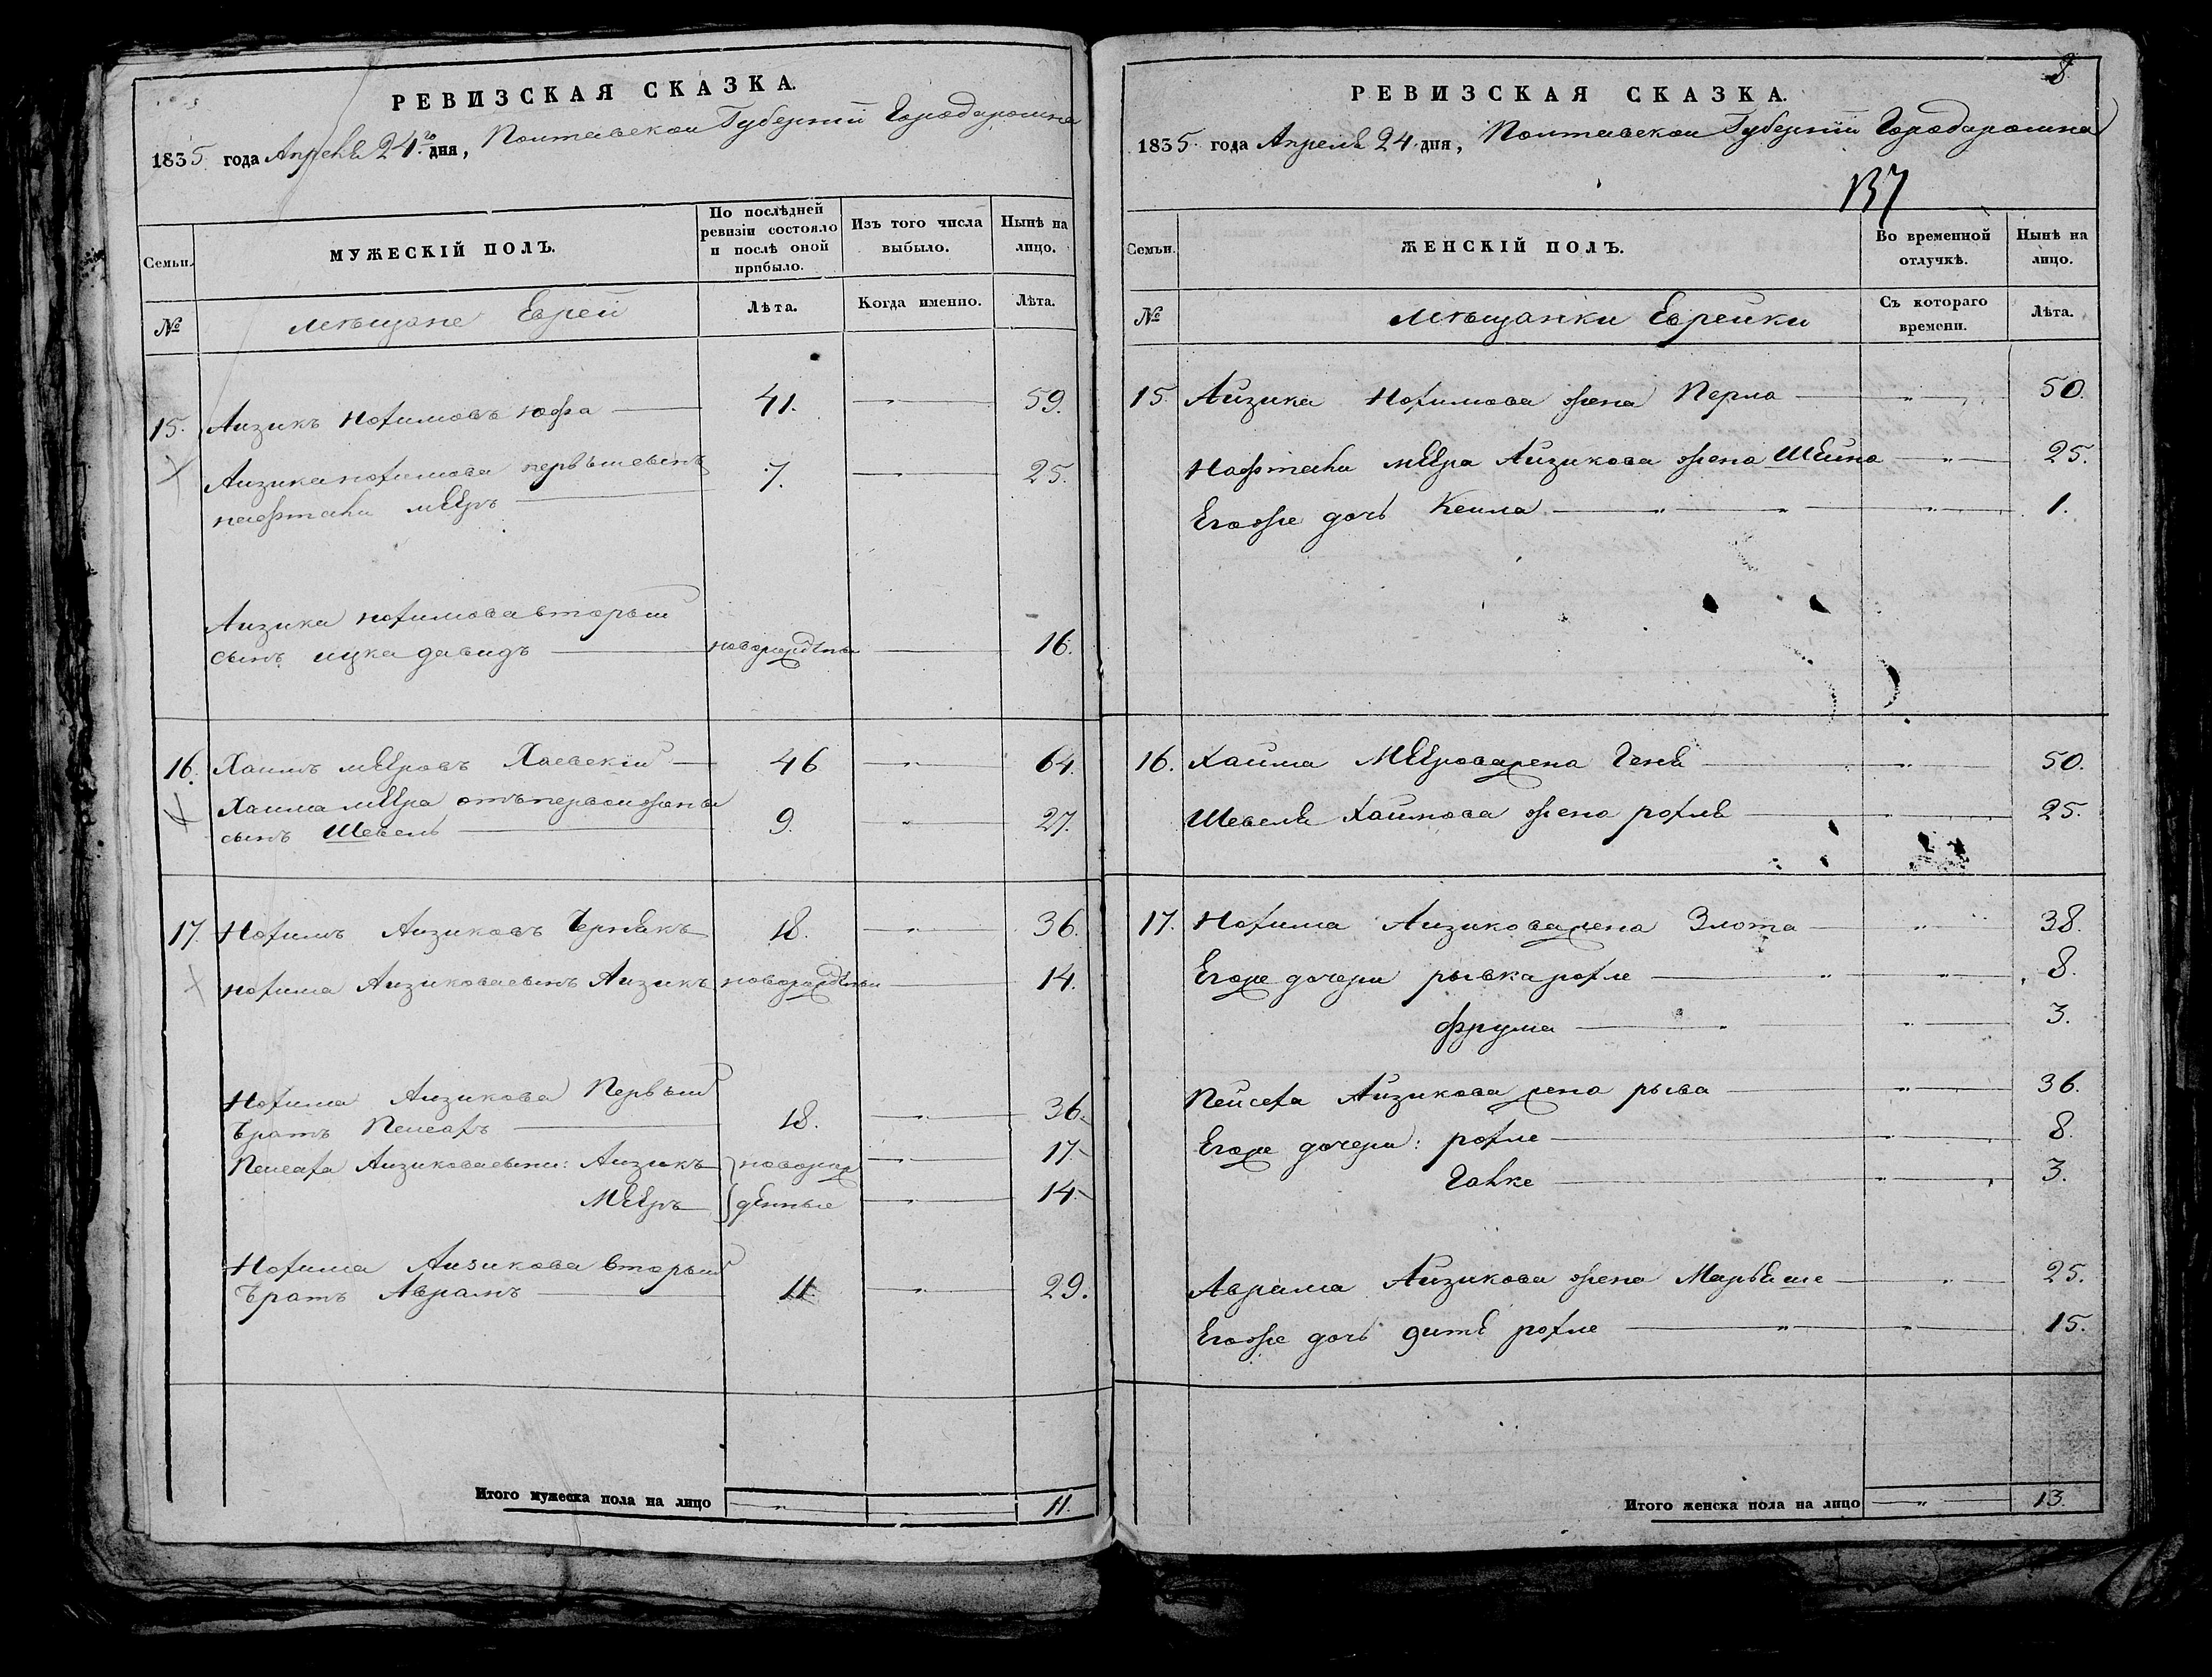 РЕВИЗСКАЯ СКАЗКА.
1835 года Апреля 24го дня, Полтавской Губернии Города
Семьи.
МУЖЕСКІЙ ПОЛЪ.
По послѣдней ревизіи состояло и послѣ оной прибыло.
Изъ того числа выбыло.
Нынѣ на лицо.
№
мѣщане Евреи
Лѣта.
Когда именно.
Лѣта.
15. Айзикъ Нохимовъ 41. 59.
Айзика нохимова первый сынъ
нафтали мееръ 7. 25.
Айзика нохимова вторый
сынъ ицка давидъ новорожденный 16.
16. Хаимъ мееровъ Хаевскій 46 64.
Хаима меера отъ первой жены
сынъ Шевель 9. 27.
17. Нохимъ Айзиковъ Чернякъ 18. 36.
нохима Айзикова сынъ Айзикъ новорожденный 14.
Нохима Айзикова Первый
братъ Пейсахъ 18. 36.
Пейсаха Айзикова сыни: Айзикъ новорож 17.
Мееръ денные 14.
Нохима Айзикова вторый
братъ Аврамъ 11. 29.
Итого мужеска пола на лицо 11.
8
РЕВИЗСКАЯ СКАЗКА.
1835 года Апреля 24 дня, Полтавской Губерніи Города
137
Семьи.
ЖЕНСКІЙ ПОЛЪ.
Во временной отлучкѣ.
Нынѣ на лицо.
№
Мѣщанки Еврейки
Съ котораго времени.
Лѣта.
15. Айзика Нохимова жена Перла 50.
Нафтали меера Айзикова жена Шейна 25.
Егоже дочь Кейла 1.
16. Хайма Меерова жена Геня 50.
Шевеля Хаимова жена рохля 25.
17. Нохима Айзикова жена Злота 38.
Егоже дочери рывка рохле 8.
фрума 3.
Пейсеха Айзикова жена рыва 36.
Егоже дочери: рохле 8.
Галке 3.
Аврама Айзикова жена Марьяше 25.
Егоже дочь рохле 15.
Итого женска пола на лицо 13.